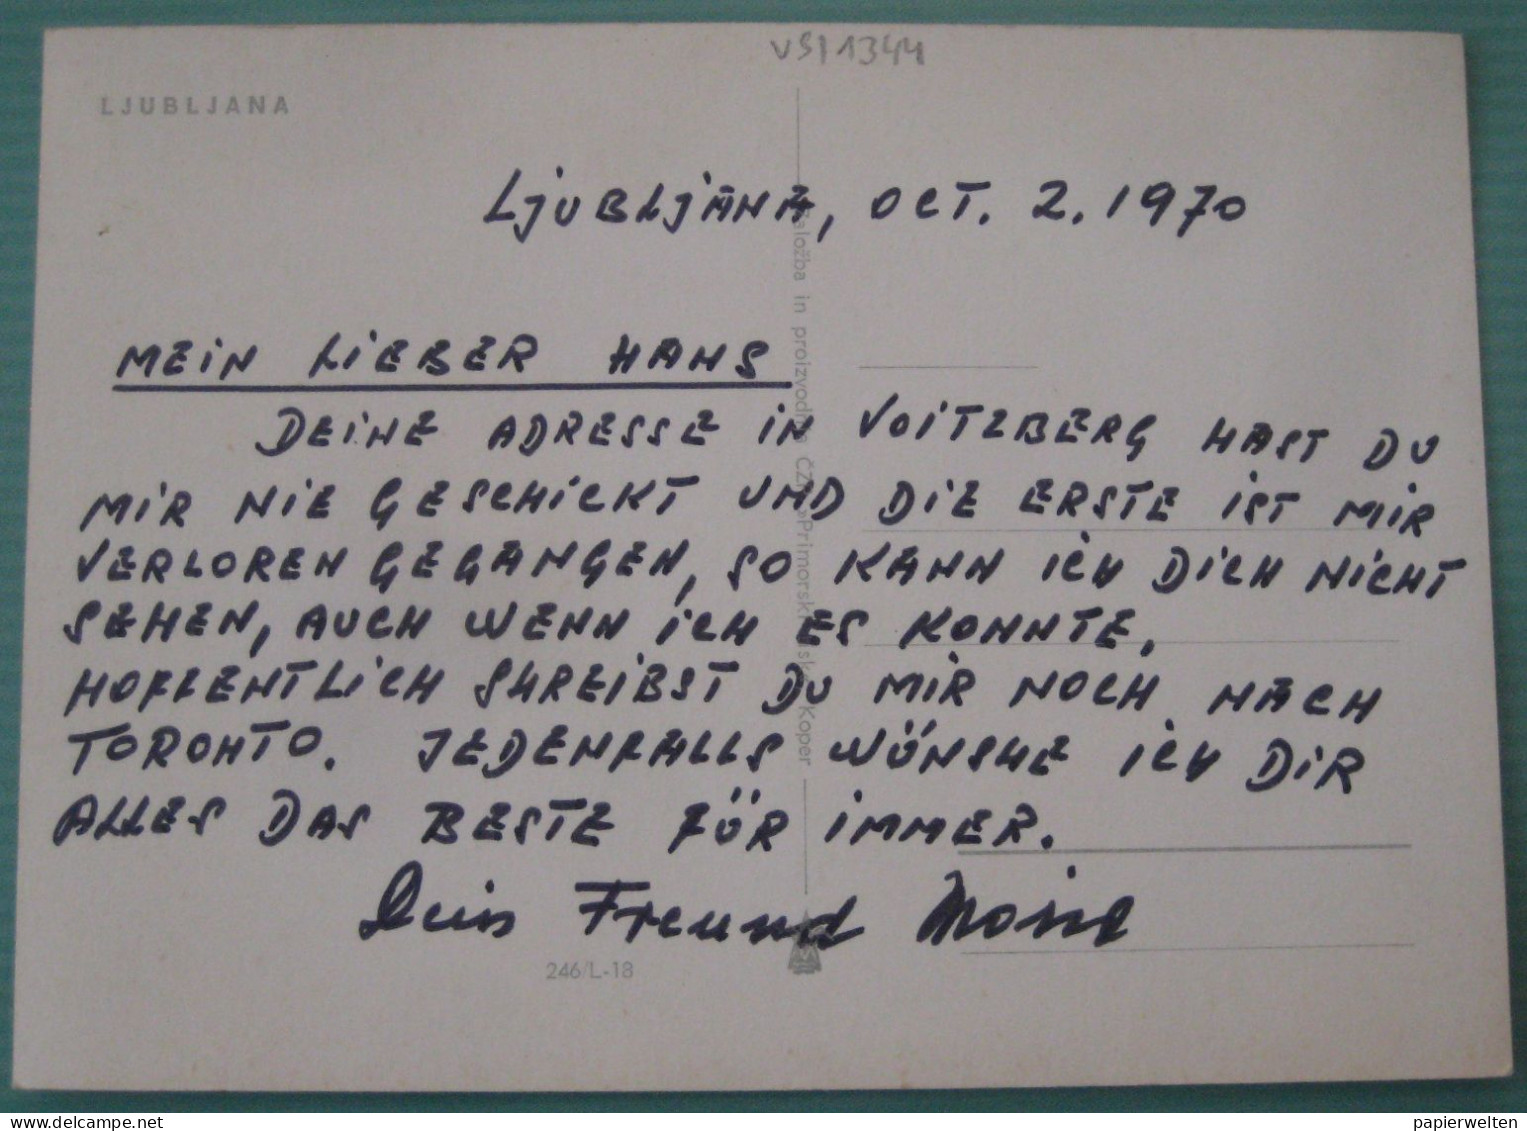 VSI 1344
LJUBLJANA
LJUBLJANA, OCT. 2. 1970
MEIN LIEBER HANS
DEINE ADRESSE IN VOITZBERG HAST DU
MIR NIE GESCHICKT UND DIE ERSTE IST MIR
VERLOREN GEGANGEN, SO KANN ICH DICH NICHT
SEHEN, AUCH WENN ICH ES KONNTE.
HOFFENTLICH SHREIBST DU MIR NOCH NACH
TORONTO. JEDENFALLS WÜNSHE ICH DIR
ALLES DAS BESTE FÜR IMMER.
Dein Freund
246/L-18
Založba in proizvodnja ČZP »Primorski Koper
delcampe.net
papierwelten